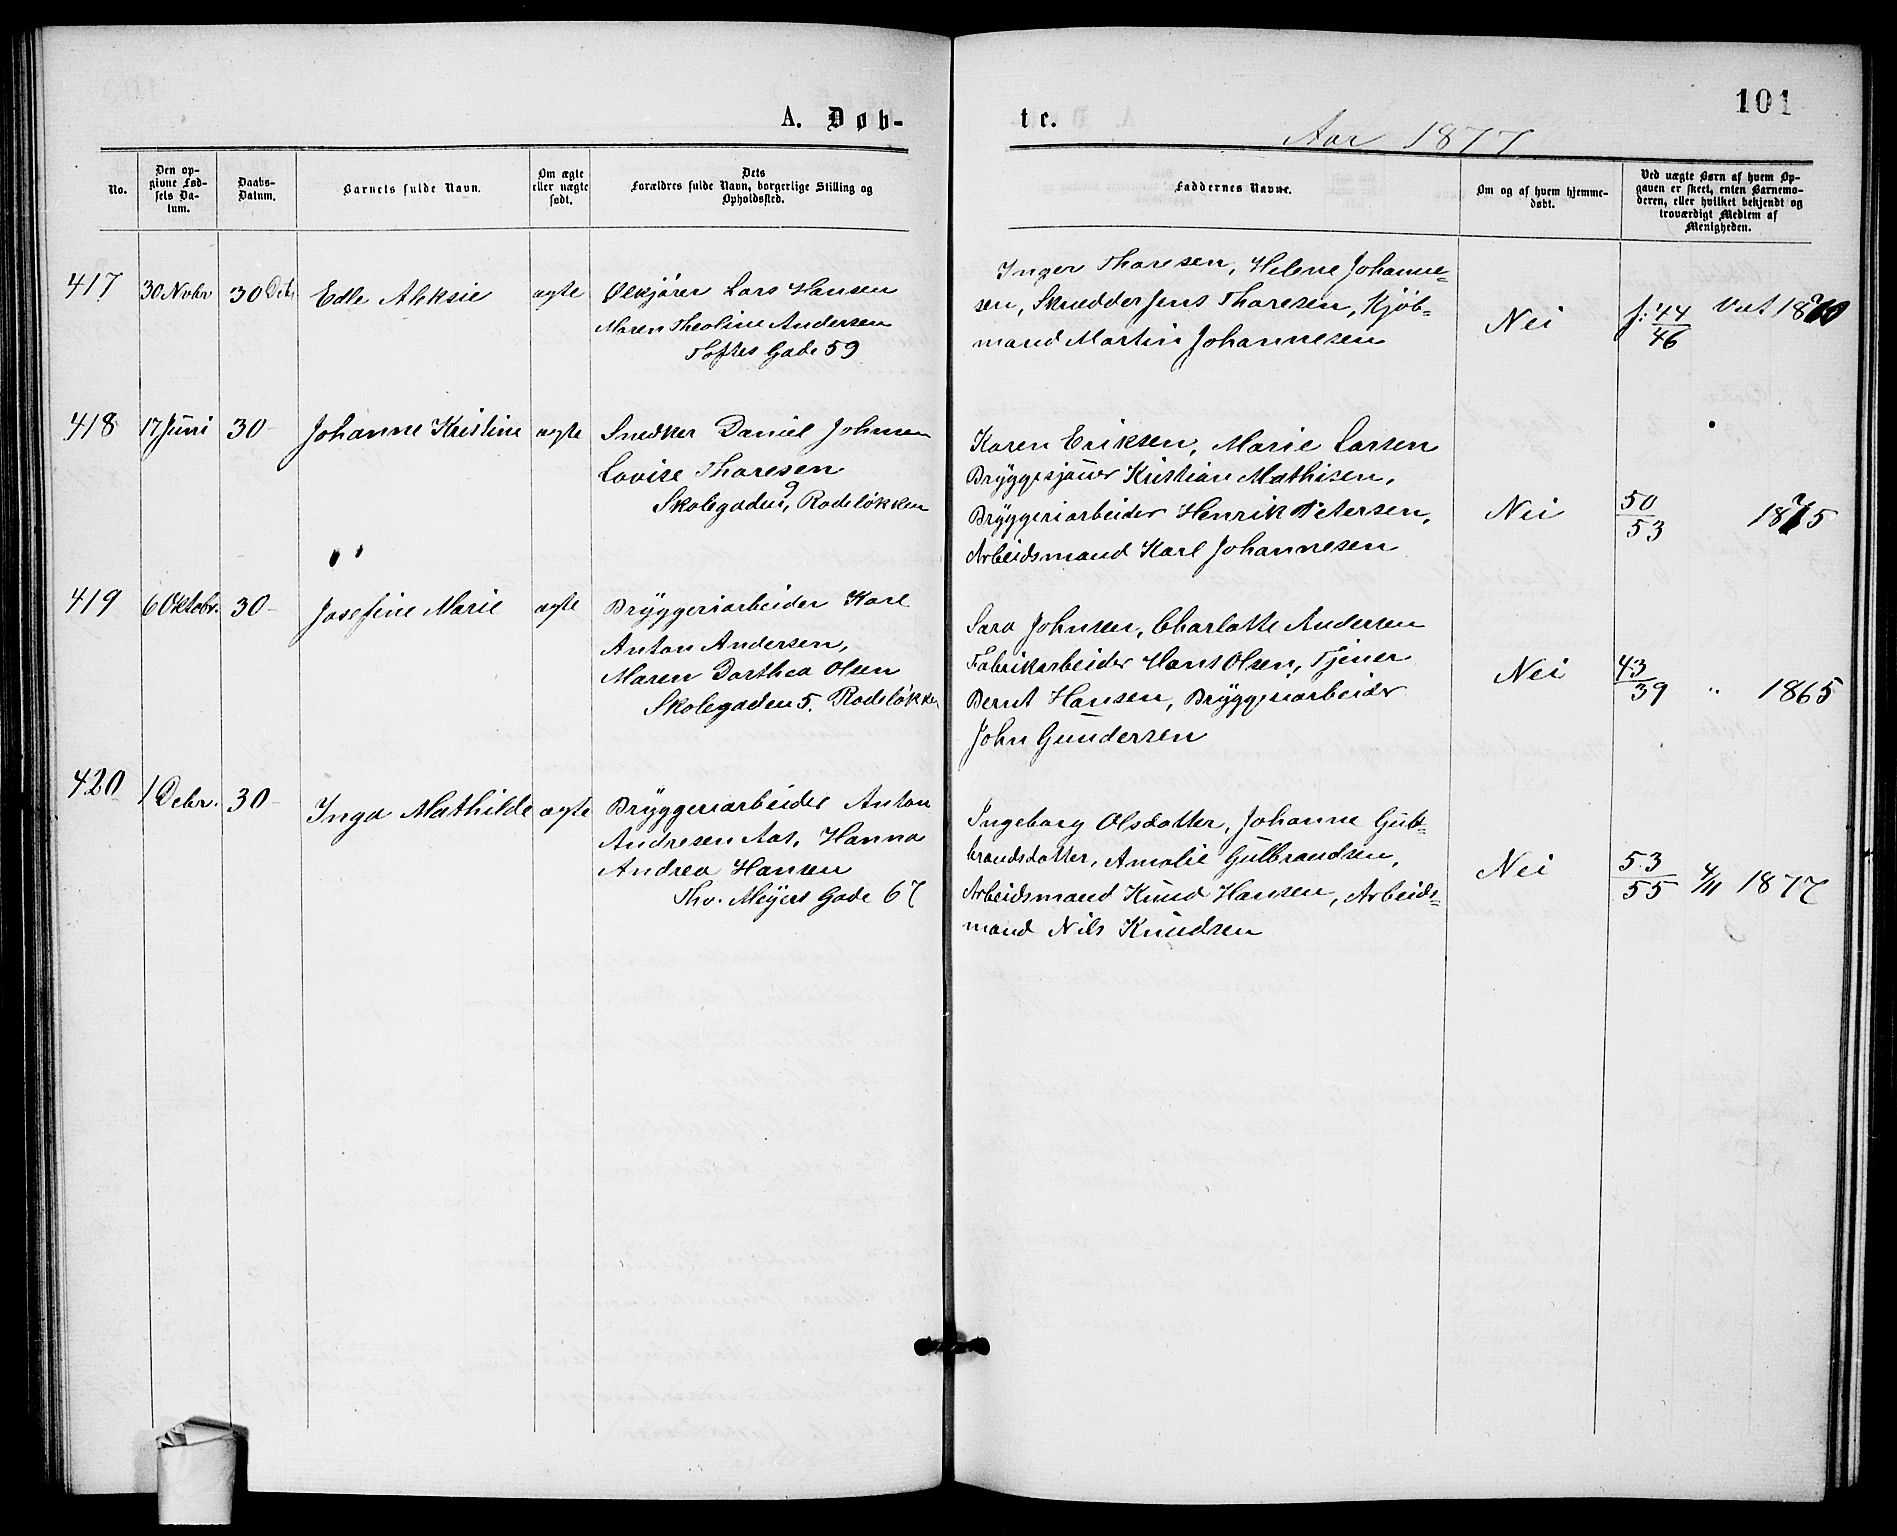 A. Døb-
No.
Den op-
givne Fød-
sels Da-
tum.
Daabs-
Datum.
Barnets fulde Navn.
Om ægte
eller uægte
født.
Dets
Forældres fulde Navn, borgerlige Stilling og
Opholdssted.
417
30 Nvbr
30 Dcb
Edle Aleksie
ægte
Ølkjører Lars Hansen
Maren Theoline Andersen
Toftes Gade 59
418
17 Juni
30-
Johanne Kristine
ægte
Snedker Daniel Johnsen
Lovise Thoresen
Skolegaden 9, Rodeløkken
419
6 Oktobr.
30-
Josefine Marie
ægte
Bryggeriarbeider Karl
Anton Andersen,
Maren Dorthea Olsen
Skolegaden 5. Rodeløkken
420
1 Debr.
30-
Inga Mathilde
ægte
Bryggeriarbeider Anton
Andresen Aas, Hanna
Andrea Hansen
Thv. Meyers Gade 67
te.
101
Aar 1877
Faddernes Navne.
Om og af hvem hjemme-
døbt.
Ved uægte Børn af hvem Op-
gaven er skeet, enten Barnemo-
deren, eller hvilket bekjendt og
troværdigt Medlem af
Menigheden.
Inger Thoresen, Helene Johanne-
sen, Skrædder Jens Thoresen, Kjøb-
mand Martin Johannesen
Nei
f: 44/46 Viet 1870
Karen Eriksen, Marie Larsen
Bryggesjauer Kristian Mathisen,
Bryggeriarbeider Henrik Petersen,
Arbeidsmand Karl Johannesen
Nei
50/53 1875
Sara Johnsen, Charlotte Andersen
Fabrikarbeider Hans Olsen, Tjener
Bernt Hansen, Bryggeriarbeider
John Gundersen
Nei
43/39 " 1865
Ingeborg Olsdatter, Johanne Gulb-
brandsdatter, Amalie Gulbrandsen,
Arbeidsmand Knud Hansen, Arbeids-
mand Nils Knudsen
Nei
53/55 4/11 1877